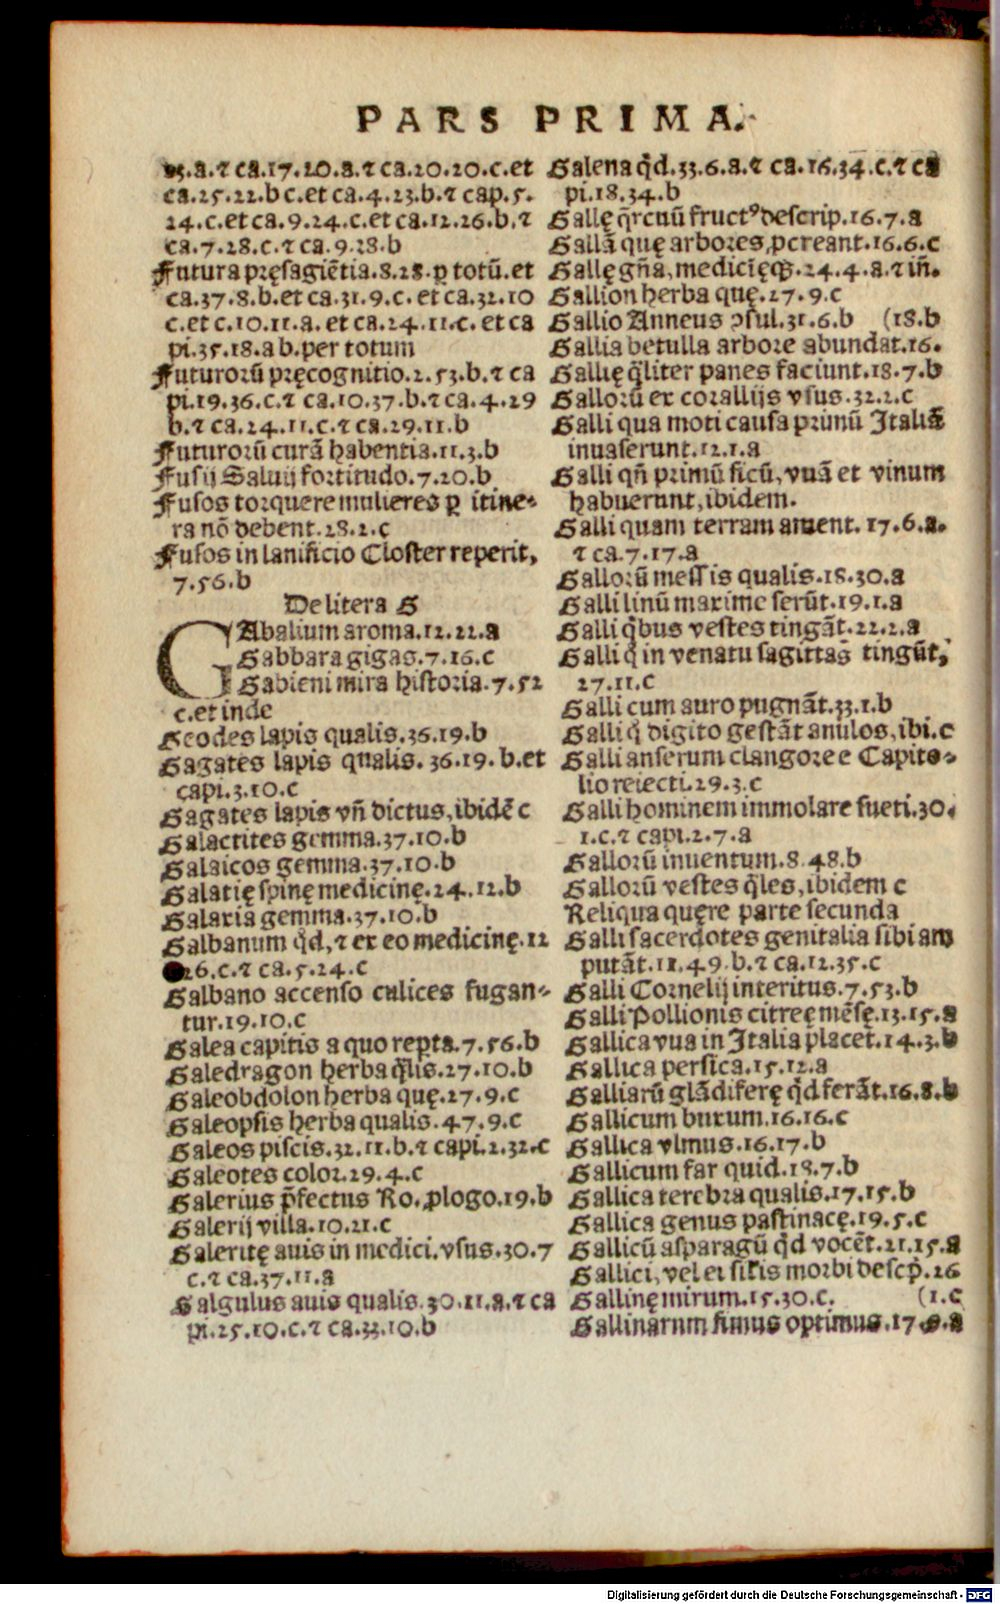 PARS PRIMA.
25.a.⁊ ca.17.20.a.⁊ ca.20.20.c.et
ca.25.22.b c.et ca.4.23.b.⁊ cap.5.
24.c.et ca.9.24.c.et ca.12.26.b.⁊
ca.7.28.c.⁊ ca.9.28.b
Futura pręsagiētia.8.28.ꝑ totū.et
ca.37.8.b.et ca.31.9.c.et ca.32.10
c.et c.10.11.a.et ca.24.11.c.et ca
pi.35.18.a b.per totum
Futurorū pręcognitio.2.53.b.⁊ ca
pi.19.36.c.⁊ ca.10.37.b.⁊ ca.4.29
b.⁊ ca.24.11.c.⁊ ca.29.11.b
Futurorū curā habentia.11.3.b
Fusij Saluij fortitudo.7.20.b
Fusos torquere mulieres ꝑ itine-
ra nō debent.28.2.c
Fusos in lanificio Closter reperit,
7.56.b
De litera G
GAbalium aroma.12.22.a
Gabbara gigas.7.16.c
Gabieni mira historia.7.52
c.et inde
Geodes lapis qualis.36.19.b
Gagates lapis qualis.36.19.b.et
capi.3.10.c
Gagates lapis vñ dictus,ibidē c
Galactites gemma.37.10.b
Galaicos gemma.37.10.b
Galatię spinę medicinę.24.12.b
Galaxia gemma.37.10.b
Galbanum qd̕,⁊ ex eo medicinę.12
26.c.⁊ ca.5.24.c
Galbano accenso culices fugan-
tur.19.10.c
Galea capitis a quo reꝑta.7.56.b
Galedragon herba q̄lis.27.10.b
Galeobdolon herba quę.27.9.c
Galeopsis herba qualis.47.9.c
Galeos piscis.32.11.b.⁊ capi.2.32.c
Galeotes color.29.4.c
Galerius p̄fectus Ro.ꝓlogo.19.b
Galerij villa.10.21.c
Galeritę auis in medici.vsus.30.7
c.⁊ ca.37.11.a
Galgulus auis qualis.30.11.a.⁊ ca
pi.25.10.c.⁊ ca.33.10.b
Galena qd̕.33.6.a.⁊ ca.16.34.c.⁊ ca
pi.18.34.b
Gallę q̄rcuū fructꝰ descrip.16.7.a
Gallā quę arbores ꝓcreant.16.6.c
Gallę gña,medicięqꝫ.24.4.a.⁊ iñ.
Gallion herba quę.27.9.c
Gallio Anneus ꝯsul.31.6.b (18.b
Gallia betulla arbore abundat.16.
Gallię q̄liter panes faciunt.18.7.b
Gallorū ex corallijs vsus.32.2.c
Galli qua moti causa primū Italiā
inuaserunt.12.1.a
Galli qñ primū ficū,vuā et vinum
habuerunt,ibidem.
Galli quam terram ament.17.6.a.
⁊ ca.7.17.a
Gallorū messis qualis.18.30.a
Galli linū maxime serūt.19.1.a
Galli qbus vestes tingāt.22.2.a
Galli q̇ in venatu sagittas tingūt,
27.11.c
Galli cum auro pugnāt.33.1.b
Galli q̇ digito gestāt anulos,ibi.c
Galli anserum clangore e Capito-
lio reiecti.29.3.c
Galli hominem immolare sueti.30.
1.c.⁊ capi.2.7.a
Gallorū inuentum.8.48.b
Gallorū vestes q̄les,ibidem c
Reliqua quęre parte secunda
Galli sacerdotes genitalia sibi am
putāt.11.49.b.⁊ ca.12.35.c
Galli Cornelij interitus.7.53.b
Galli Pollionis citreę mēsę.13.15.a
Gallica vua in Italia placet.14.3.b
Gallica persica.15.12.a
Galliarū glādiferę qd̕ ferāt.16.8.b
Gallicum buxum.16.16.c
Gallica vlmus.16.17.b
Gallicum far quid.18.7.b
Gallica terebra qualis.17.15.b
Gallica genus pastinacę.19.5.c
Gallicū asparagū qd̕ vocēt.21.15.a
Gallici,vel ei silis morbi descp̄.26
Gallinę mirum.15.30.c. (1.c
Gallinarum fimus optimus.17.9.a
Digitalisierung gefördert durch die Deutsche Forschungsgemeinschaft - DFG